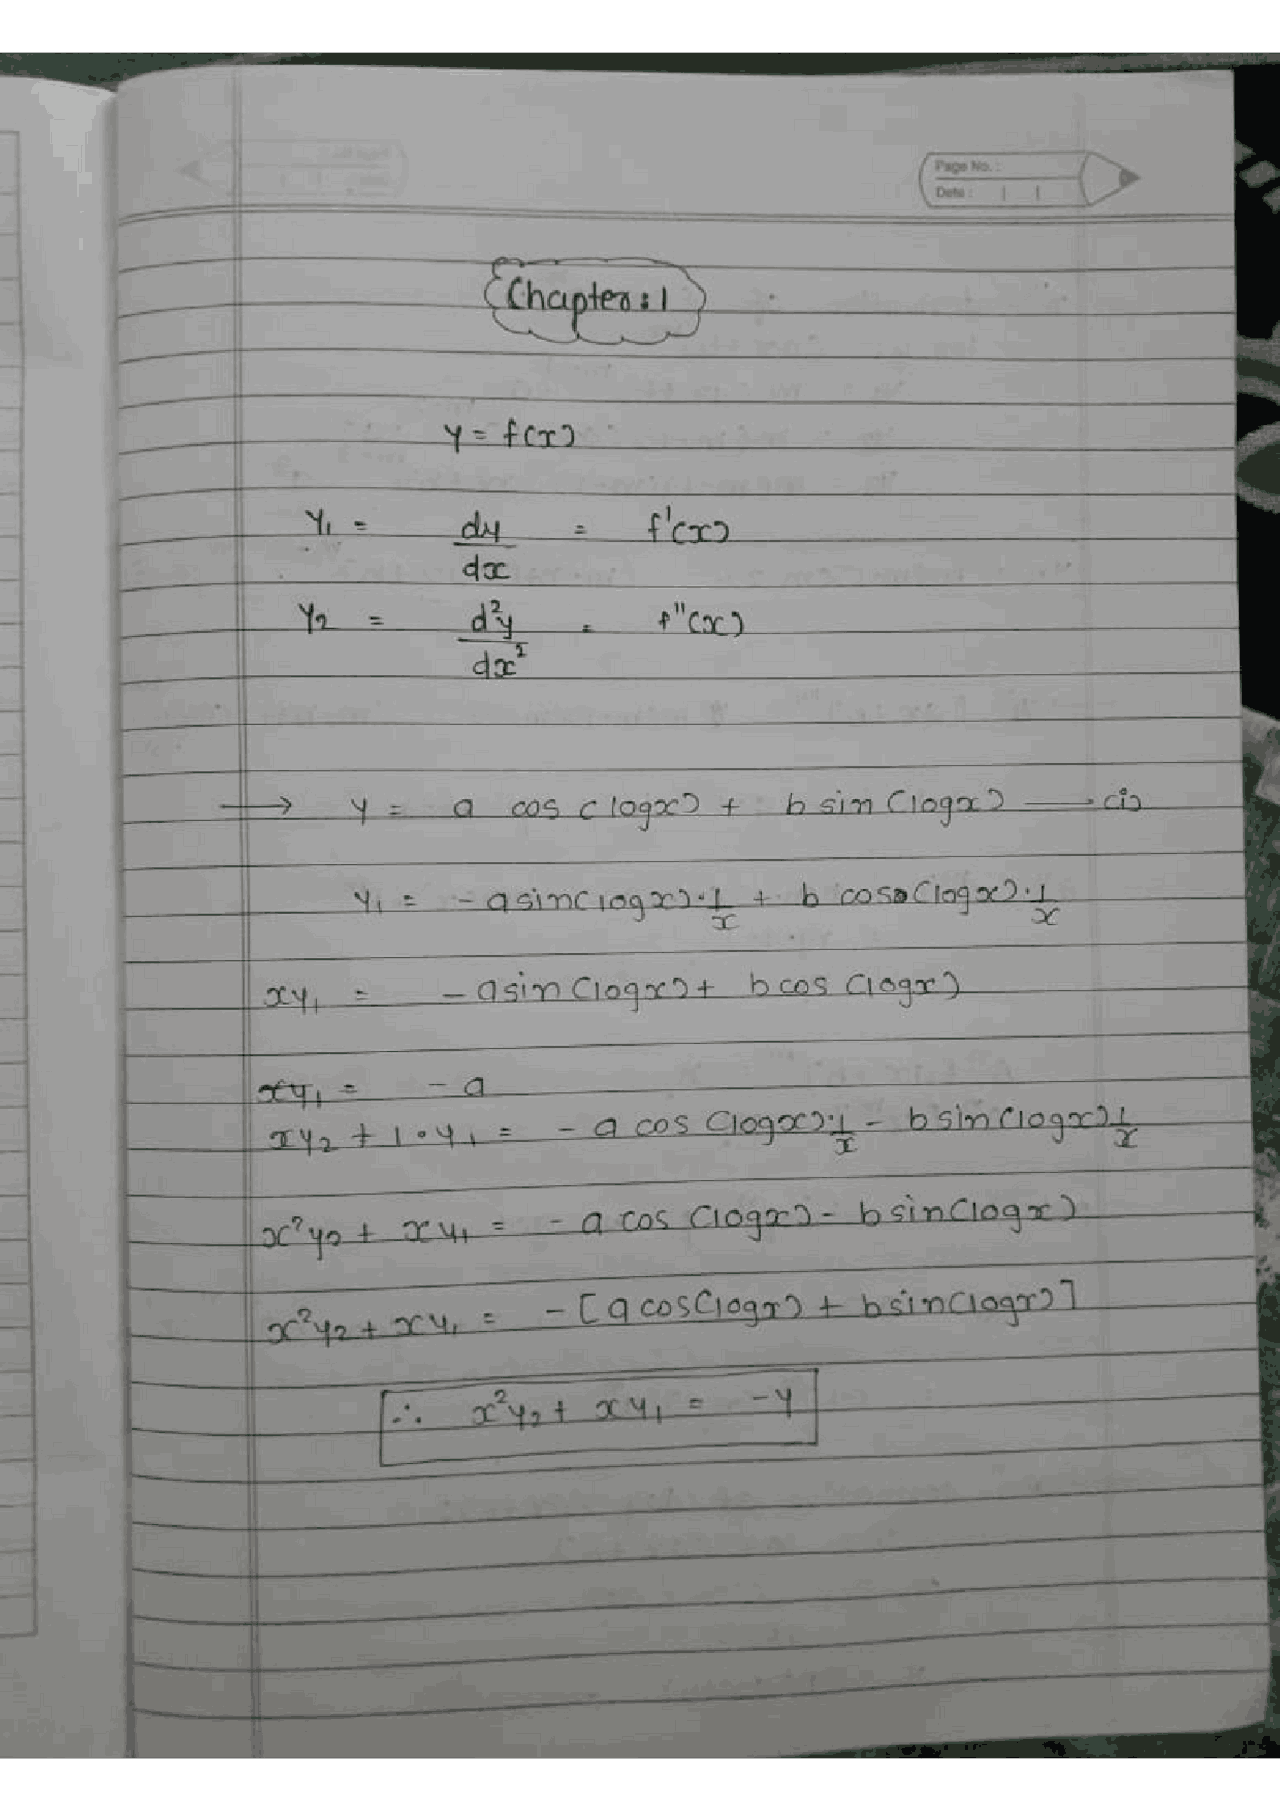 Page No.:
Date:
Chapter:1
y = f(x)
y₁ = dy/dx = f'(x)
y₂ = d²y/dx² = f"(x)
→ y = a cos (logx) + b sin (logx) — (i)
y₁ = - a sin(logx)·1/x + b cos(logx)·1/x
xy₁ = - a sin (logx) + b cos (logx)
xy₁ = - a
xy₂ + 1·y₁ = - a cos (logx)·1/x - b sin (logx)1/x
x²y₂ + xy₁ = - a cos (logx) - b sin(logx)
x²y₂ + xy₁ = - [a cos(logx) + b sin(logx)]
∴ x²y₂ + xy₁ = -y